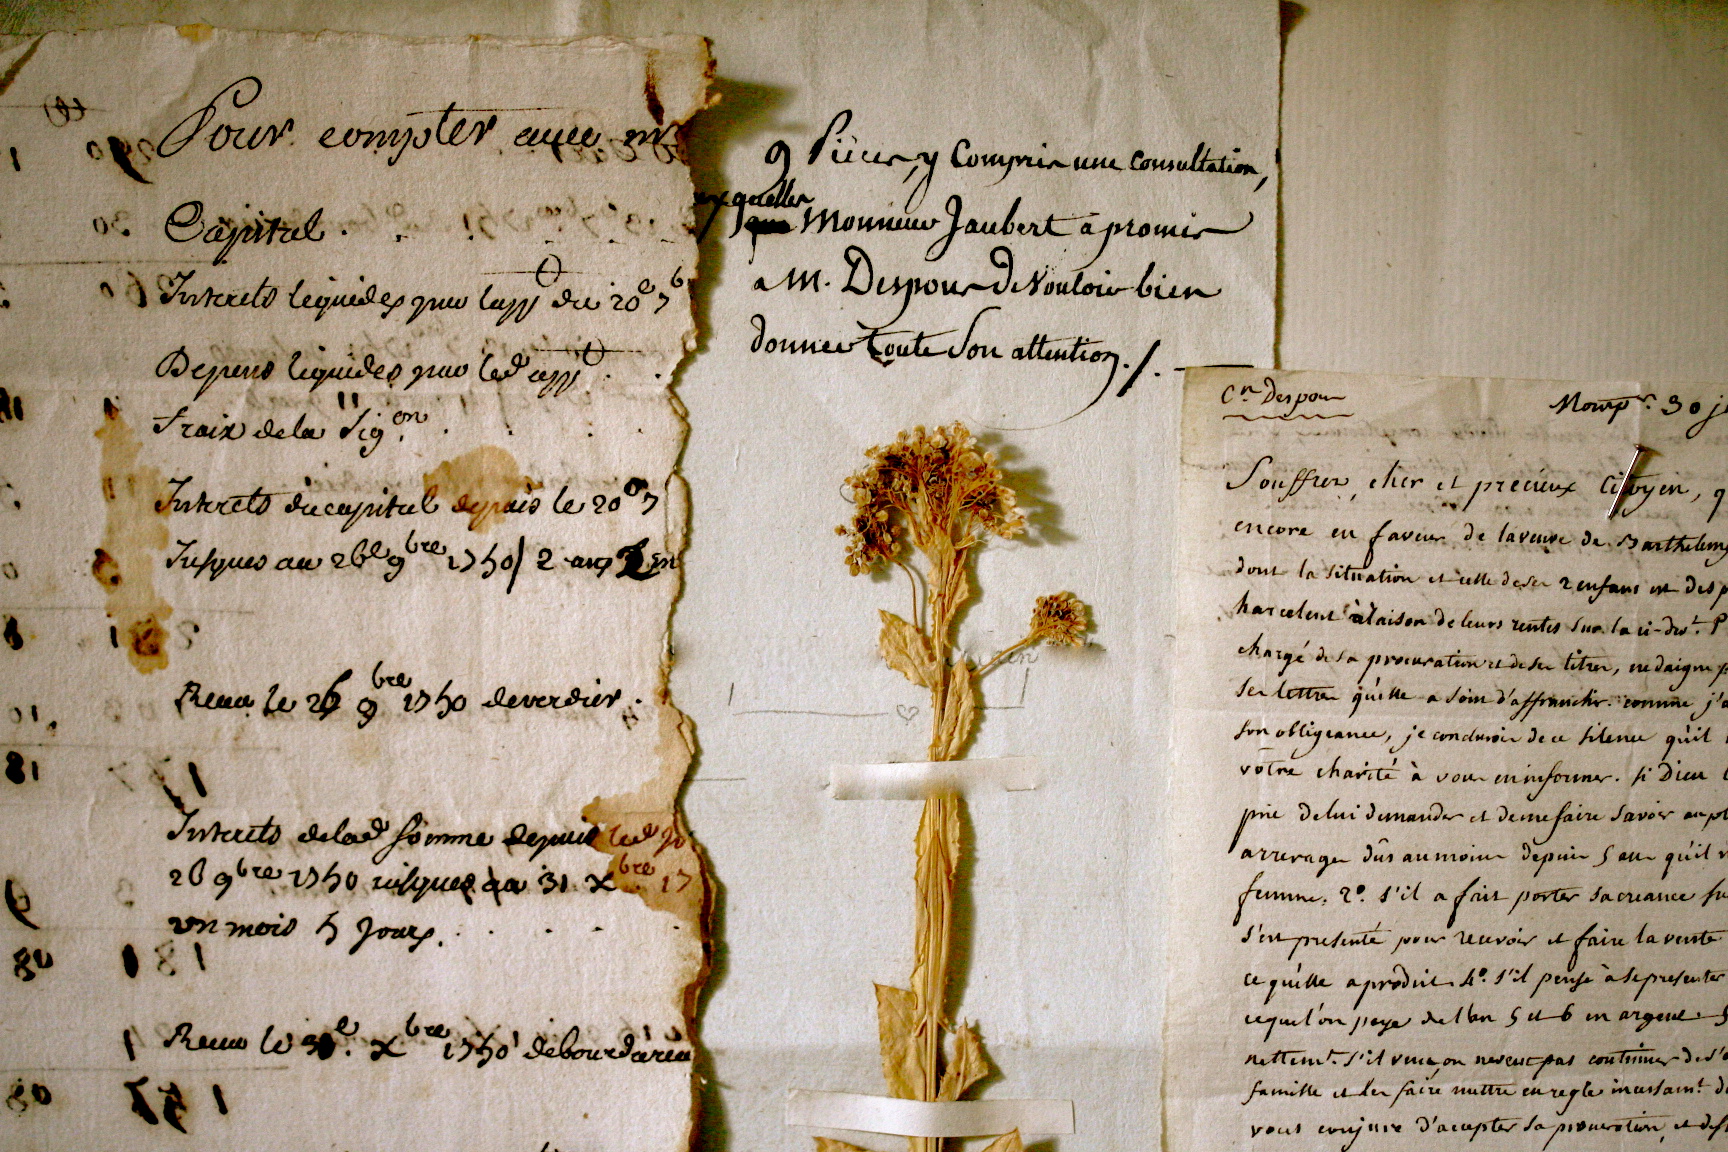 Pour compter avec mr
Capital
Interets liquides par l'app^t du 20e 7b
Depens liquides par led app^t
Fraix de la Sig^on.
Interets du capital depuis le 20e 7
Jusques au 26e 9bre 1750/ 2 ans 2 m
Reçu le 26 9bre 1750 de verdier.
Interets de lad somme depuis led jo
26 9bre 1750 jusques au 31 xbre 17
un mois 5 jours.
Reçu le 31e. xbre 1750
9 Pieces, y Compris une Consultation,
auxquelles
Monsieur Jaubert a promis
a M. Despous De Vouloir bien
donner toute Son attention ./.
Cn Despous
Montpr. 30 j
Souffrez, cher et précieux Citoyen, q
encore en faveur de la veuve de Barthelemy
dont la situation et celle de ses 2 enfans est des p
harcelent à raison de leurs rentes sur la ci-devt. P
chargé de sa procuration et de ses titres, ne daigne p
ses lettres qu'elle a soin d'affranchir. comme j'a
son obligeance, je conclurois de ce silence qu'il
vôtre charité à vous en informer. si Dieu l
prie de lui demander et de me faire savoir au pl
arrerages dûs au moins depuis 5 ans qu'il
femme. 2°. s'il a fait porter sa creance su
s'est presenté pour recevoir et faire la vente
ce qu'elle a produit. 4°. s'il pense à se presenter
ce que l'on paye de l'an 5 et 6 en argent. 5
nettemt. s'il veut, ou ne veut pas continuer de s'o
famille et les faire mettre en regle incessamt. d
vous conjure d'accepter sa procuration, et de s